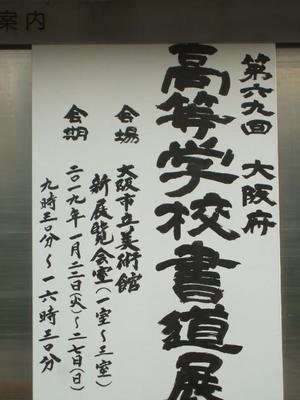 案内
第六九回 大阪府
高等学校書道展
会場 大阪市立美術館
新展覧会室(一室～三室)
会期 二〇一九年一月二二日(火)～二七日(日)
九時三〇分～一六時三〇分